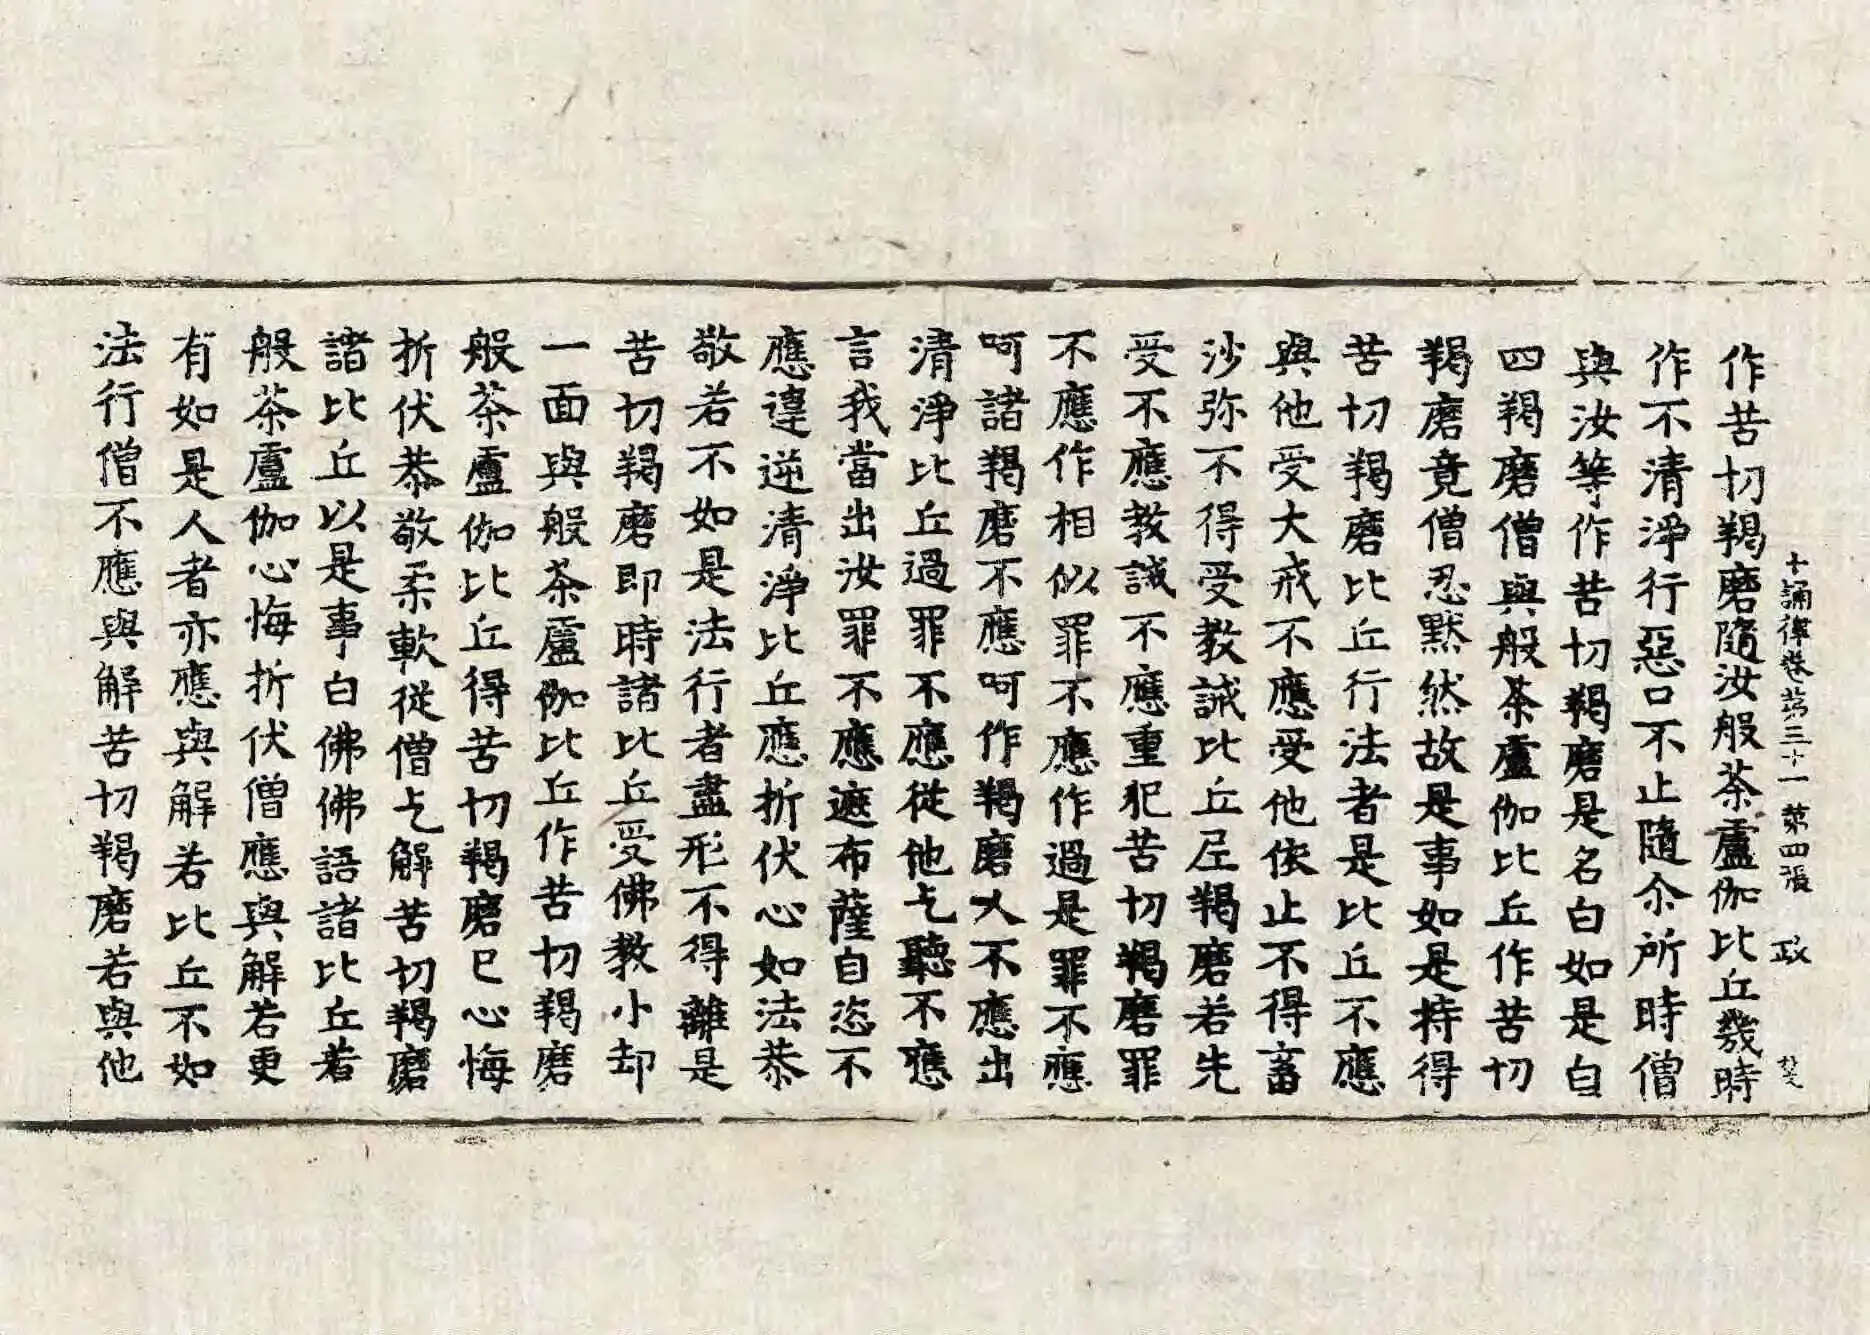 十誦律卷第三十一 第四張 政
作苦切羯磨隨汝般茶盧伽比丘幾時
作不清淨行惡口不止隨尒所時僧
與汝等作苦切羯磨是名白如是白
四羯磨僧與般茶盧伽比丘作苦切
羯磨竟僧忍默然故是事如是持得
苦切羯磨比丘行法者是比丘不應
與他受大戒不應受他依止不得畜
沙弥不得受教誡比丘尼羯磨若先
受不應教誡不應重犯苦切羯磨罪
不應作相似罪不應作過是罪不應
呵諸羯磨不應呵作羯磨人不應出
清淨比丘過罪不應從他乞聽不應
言我當出汝罪不應遮布薩自恣不
應違逆清淨比丘應折伏心如法恭
敬若不如是法行者盡形不得離是
苦切羯磨即時諸比丘受佛教小却
一面與般茶盧伽比丘作苦切羯磨
般茶盧伽比丘得苦切羯磨已心悔
折伏恭敬柔軟從僧乞解苦切羯磨
諸比丘以是事白佛佛語諸比丘若
般茶盧伽心悔折伏僧應與解若更
有如是人者亦應與解若比丘不如
法行僧不應與解苦切羯磨若與他